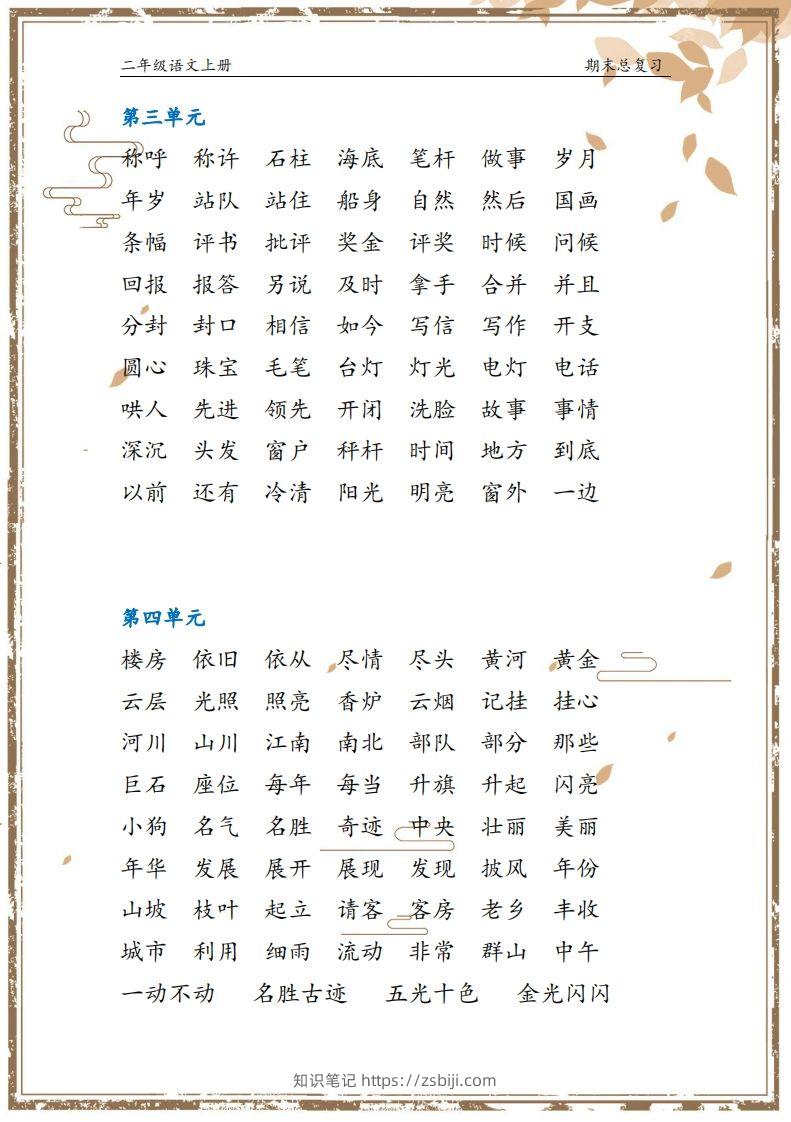 二年级语文上册 期末总复习
第三单元
称呼 称许 石柱 海底 笔杆 做事 岁月
年岁 站队 站住 船身 自然 然后 国画
条幅 评书 批评 奖金 评奖 时候 问候
回报 报答 另说 及时 拿手 合并 并且
分封 封口 相信 如今 写信 写作 开支
圆心 珠宝 毛笔 台灯 灯光 电灯 电话
哄人 先进 领先 开闭 洗脸 故事 事情
深沉 头发 窗户 秤杆 时间 地方 到底
以前 还有 冷清 阳光 明亮 窗外 一边
第四单元
楼房 依旧 依从 尽情 尽头 黄河 黄金
云层 光照 照亮 香炉 云烟 记挂 挂心
河川 山川 江南 南北 部队 部分 那些
巨石 座位 每年 每当 升旗 升起 闪亮
小狗 名气 名胜 奇迹 中央 壮丽 美丽
年华 发展 展开 展现 发现 披风 年份
山坡 枝叶 起立 请客 客房 老乡 丰收
城市 利用 细雨 流动 非常 群山 中午
一动不动 名胜古迹 五光十色 金光闪闪
知识笔记 https://zsbiji.com